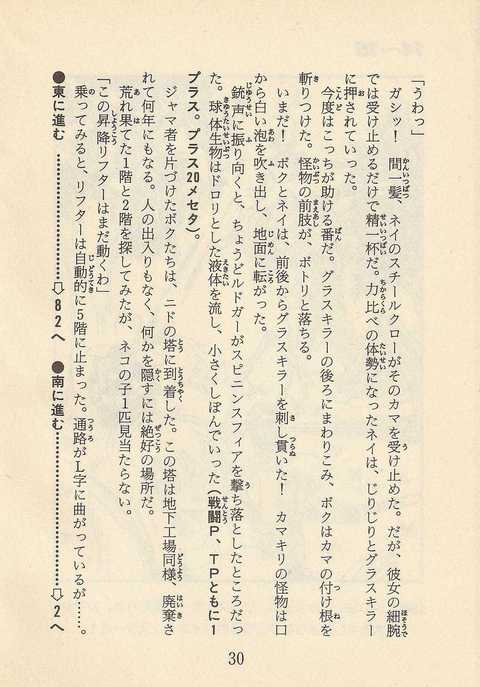 「うわっ」
ガシッ！　間一髪、ネイのスチールクローがそのカマを受け止めた。だが、彼女の細腕
では受け止めるだけで精一杯だ。力比べの体勢になったネイは、じりじりとグラスキラー
に押されていった。
今度はこっちが助ける番だ。グラスキラーの後ろにまわりこみ、ボクはカマの付け根を
斬りつけた。怪物の前肢が、ボトリと落ちる。
いまだ！　ボクとネイは、前後からグラスキラーを刺し貫いた！　カマキリの怪物は口
から白い泡を吹き出し、地面に転がった。
銃声に振り向くと、ちょうどルドガーがスピニンスフィアを撃ち落としたところだっ
た。球体生物はドロリとした液体を流し、小さくしぼんでいった（戦闘P、TPともに1
プラス。プラス20メセタ）。
ジャマ者を片づけたボクたちは、ニドの塔に到着した。この塔は地下工場同様、廃棄さ
れて何年にもなる。人の出入りもなく、何かを隠すには絶好の場所だ。
荒れ果てた1階と2階を探してみたが、ネコの子1匹見当たらない。
「この昇降リフターはまだ動くわ」
乗ってみると、リフターは自動的に5階に止まった。通路がL字に曲がっているが……。
●東に進む…………………⇨82へ　●南に進む…………………⇨2へ
30